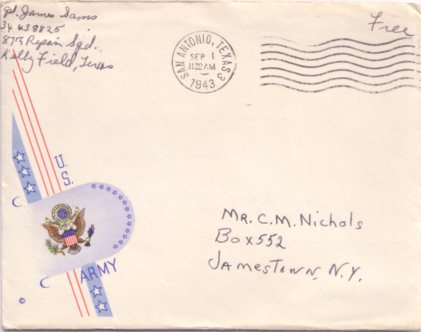 Pvt. James Sams
34 438825
8TH Repair Sqd.
Kelly Field, Texas
SAN ANTONIO, TEXAS 3
SEP 1
11 30 AM
1943
Free
U.S.
ARMY
Mr. C. M. Nichols
Box 552
Jamestown, N.Y.
©